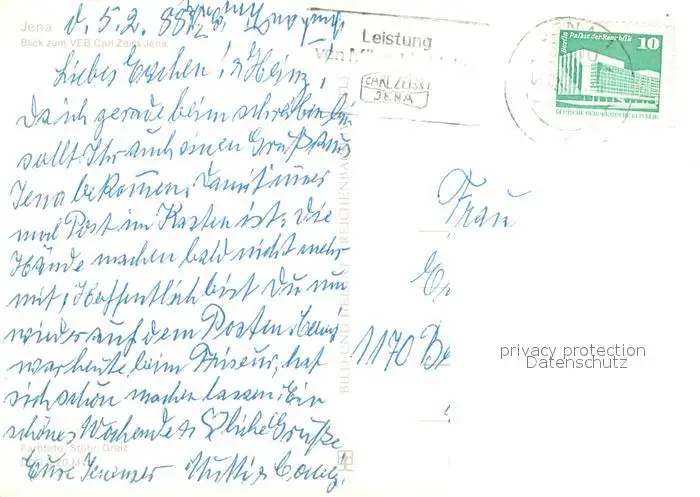 Jena
d. 5.2. 88
Blick zum VEB Carl Zeiss Jena
Liebes Evchen! & Heinz
Da ich gerade beim schreiben bin
sollt Ihr auch einen Gruß aus
Jena bekommen, damit immer
mal Post im Kasten ist, die
Hände machen bald nicht mehr
mit, Hoffentlich bist Du nun
wieder auf dem Posten,
war heute beim Friseur, hat
sich schön machen lassen. Ein
schönes Wochende & Grüße
Farbfoto: Stöhr, Greiz
Eure Jenenser Mutti &
Leistung
von
CARL ZEISS
JENA
JENA
Berlin Palast der Republik
10
DEUTSCHE DEMOKRATISCHE REPUBLIK
BILD UND HEIMAT REICHENBACH
Frau
1170 Be
privacy protection
Datenschutz